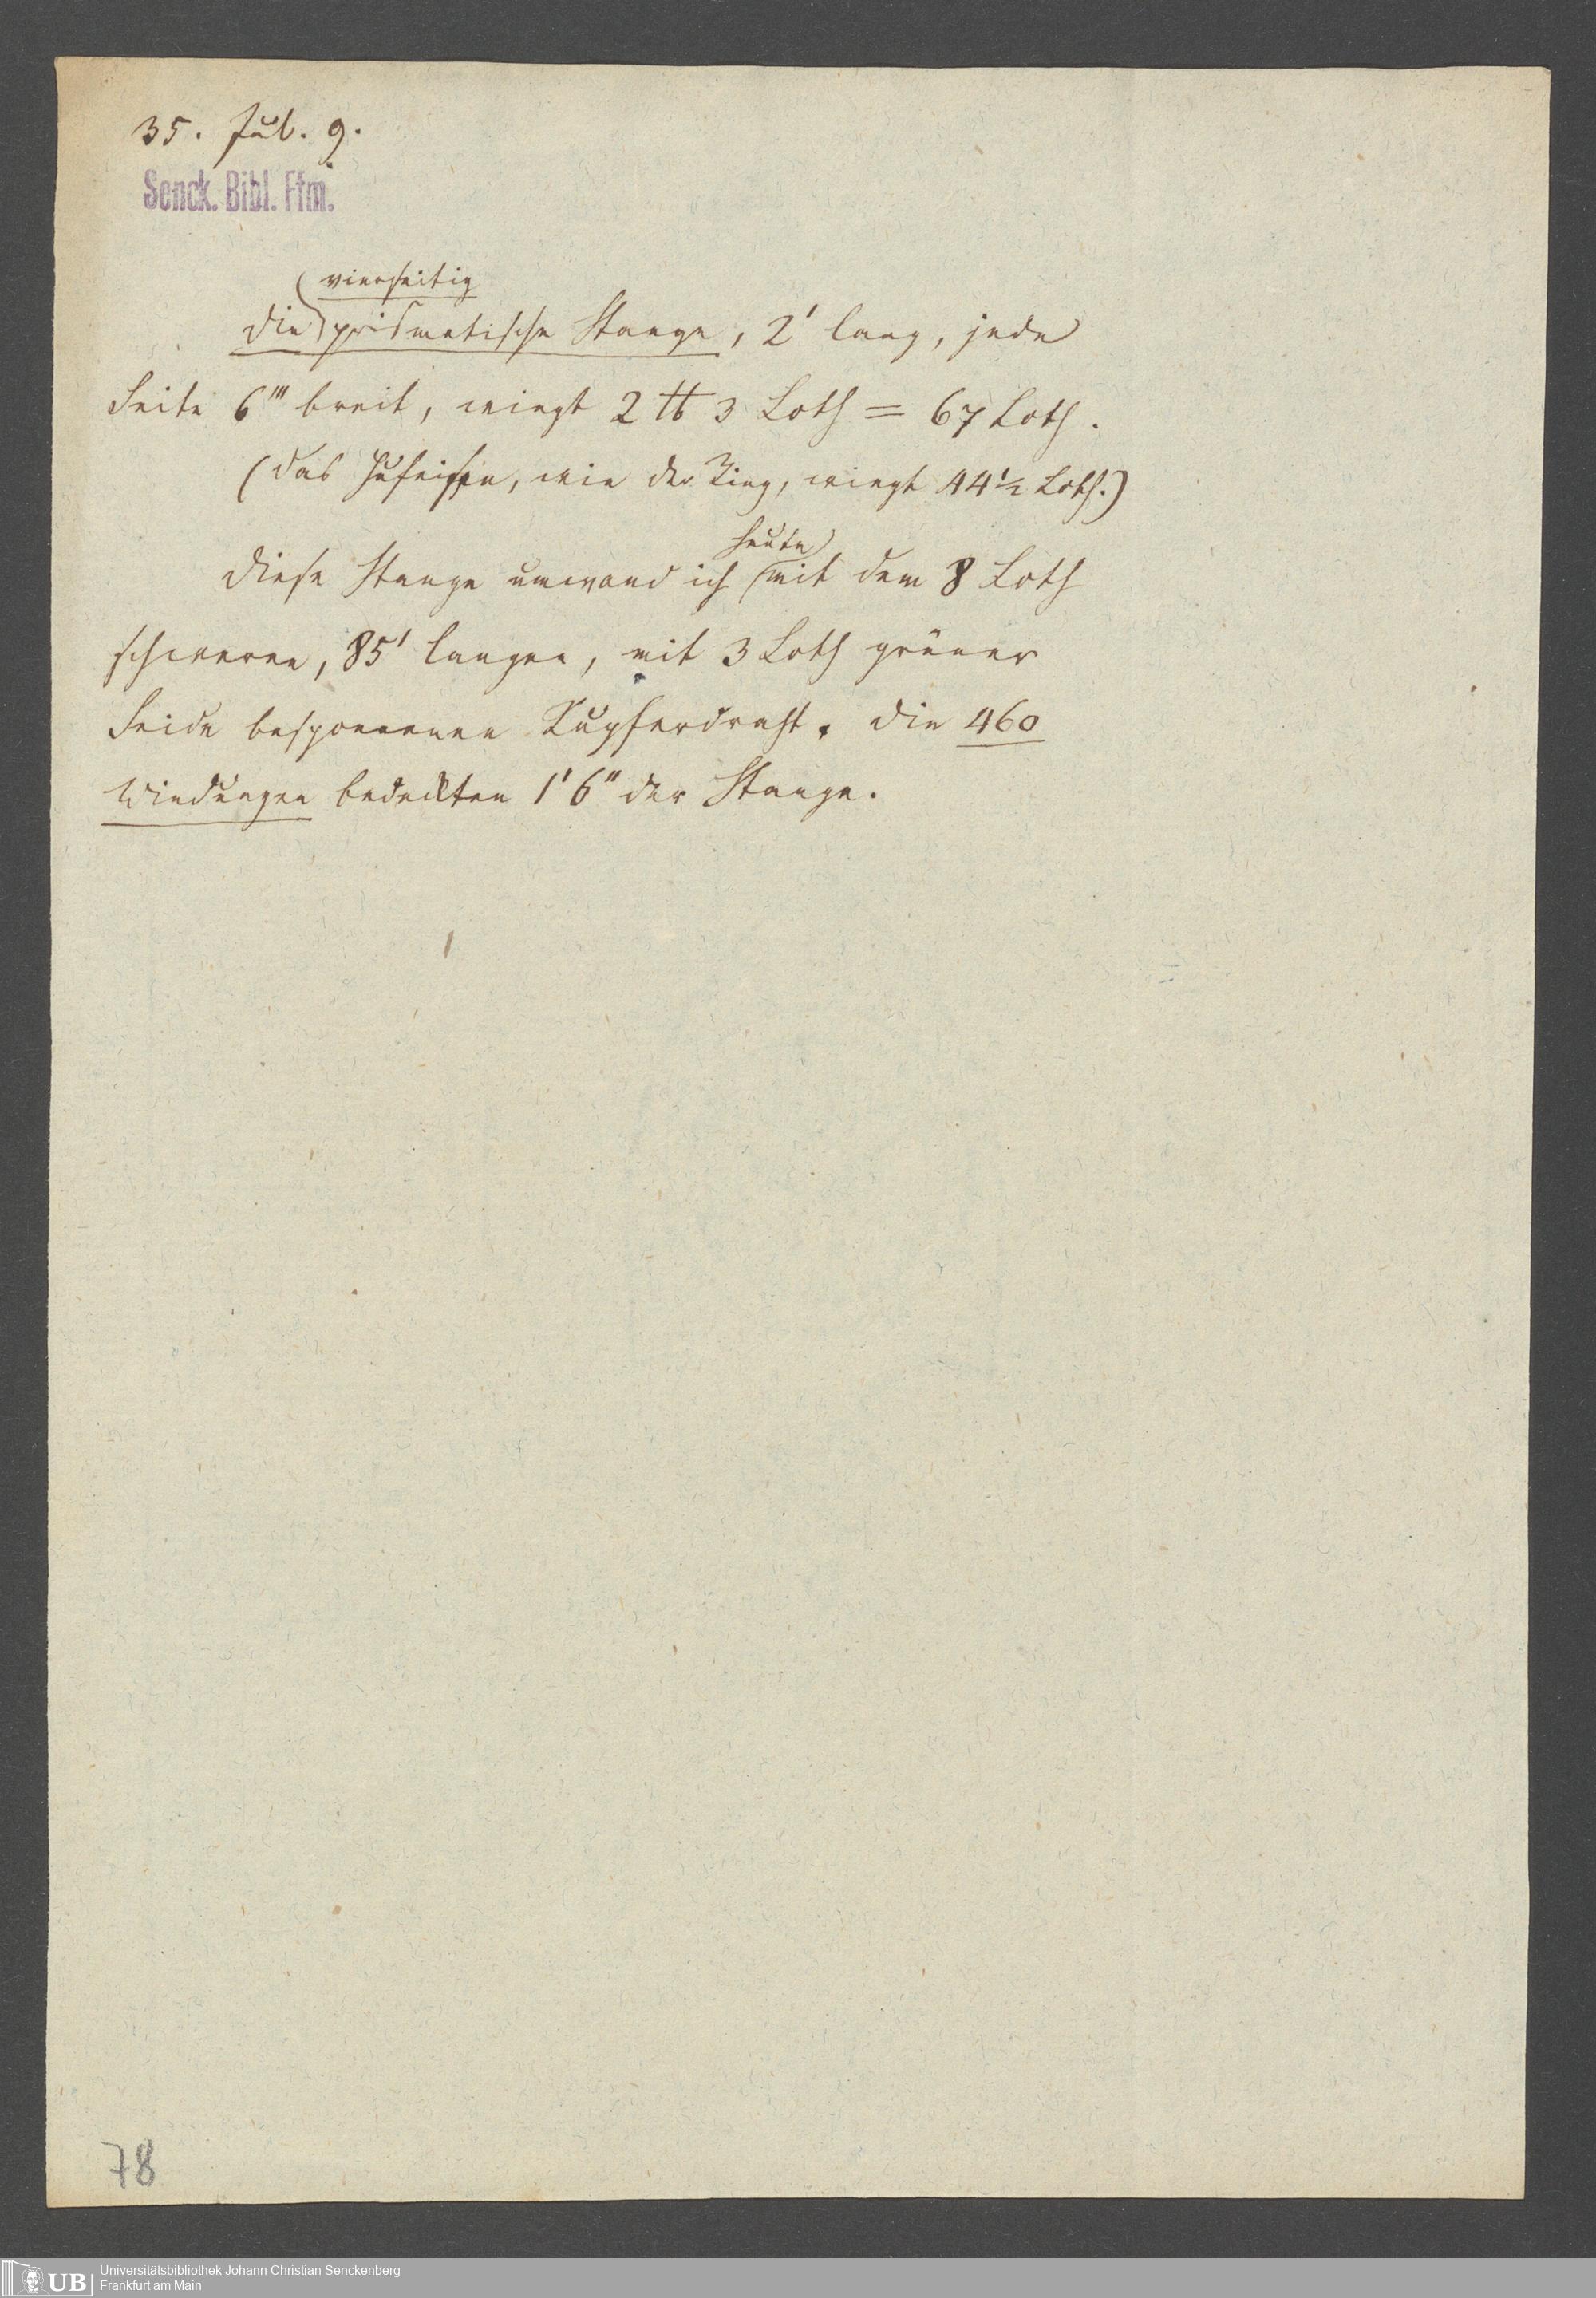 35. Jul. 9.
Senck. Bibl. Ffm.
vierseitig
Die prismatische Stange, 2' lang, jede
Seite 6''' breit, wiegt 2 ℔ 3 Loth = 67 Loth.
(das Hufeisen, wie der Ring, wiegt 44½ Loth.)
heute
Diese Stange umwand ich mit dem 8 Loth
schweren, 85' langen, mit 3 Loth grüner
Seide besponnenen Kupferdraht. Die 460
Windungen bedeckten 1' 6'' der Stange.
78
UB
Universitätsbibliothek Johann Christian Senckenberg
Frankfurt am Main